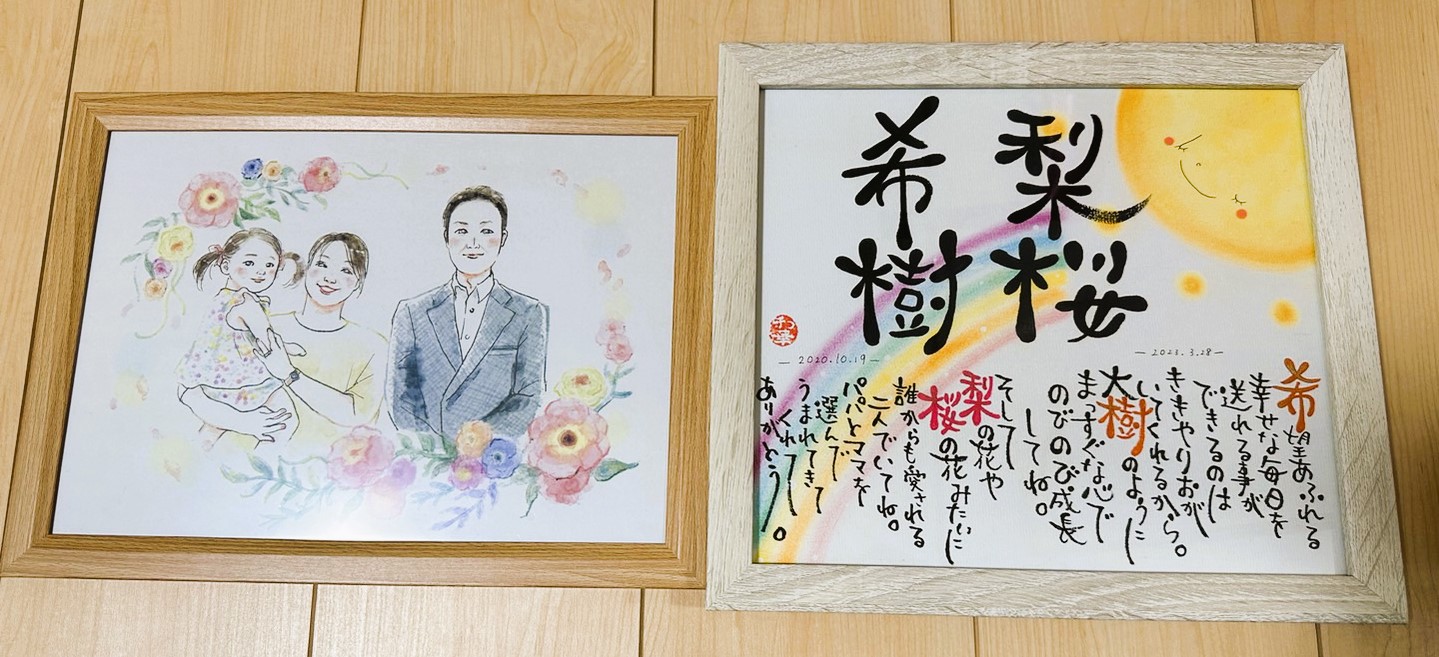 梨桜
希樹
—2023.3.28—
—2020.10.19—
希望あふれる
幸せな毎日を
送れる事が
できるのは
ききやりおが
いてくれるから。
大樹のように
まっすぐな心で
のびのび成長
してね。
そして
梨の花や
桜の花みたいに
誰からも愛される
二人でいてね。
パパとママを
選んで
うまれてきて
くれて
ありがとう。